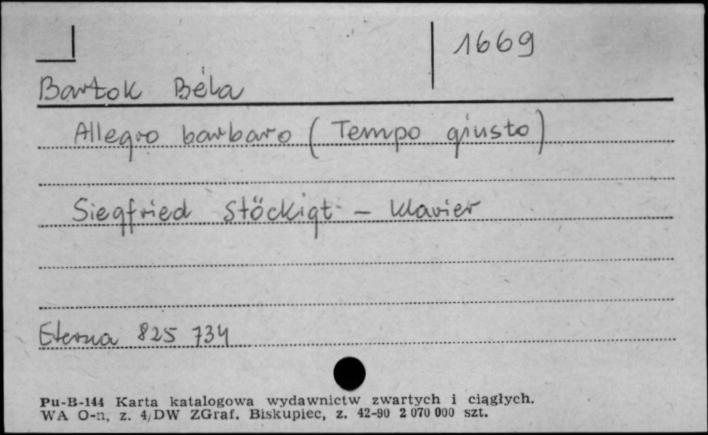 1669
Bartok Béla
Allegro barbaro (Tempo giusto)
Siegfried Stöckigt - Klavier
Eterna 825 734
Pu-B-144 Karta katalogowa wydawnictw zwartych i ciągłych.
WA O-n, z. 4/DW ZGraf. Biskupiec, z. 42-90 2 070 000 szt.